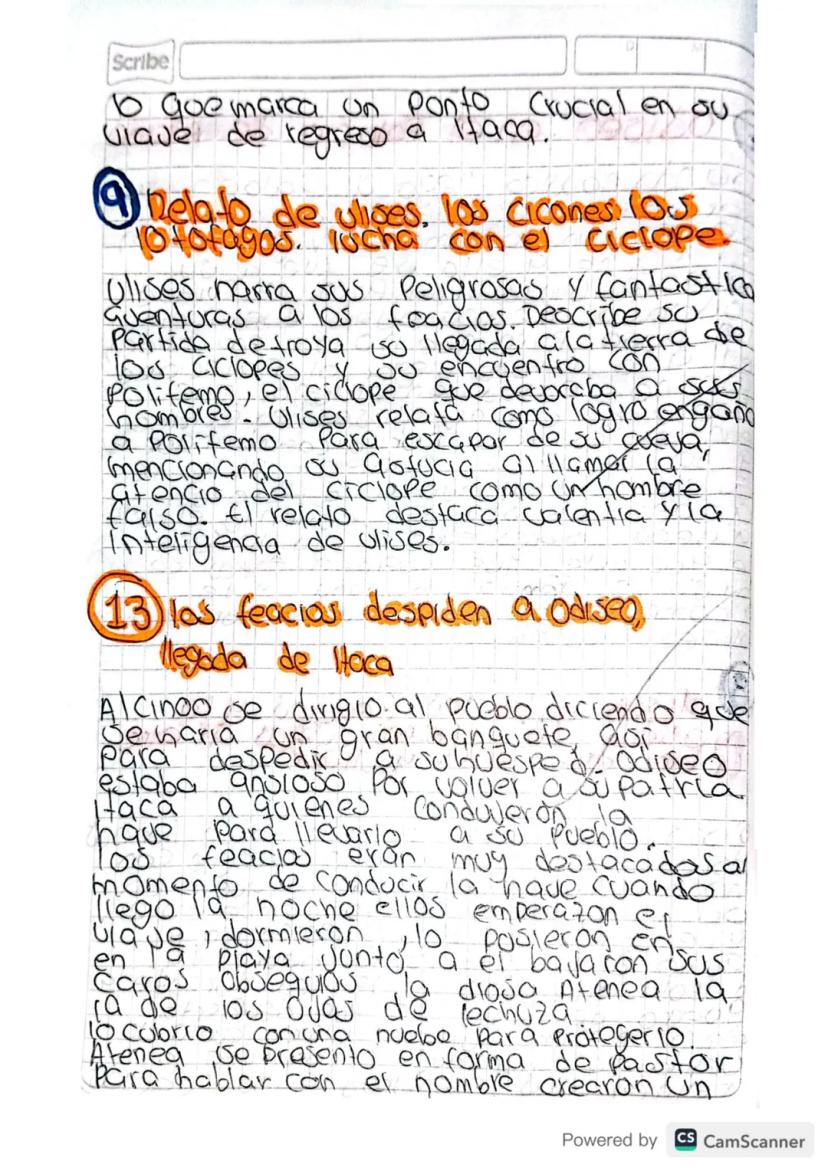 Scribe
D M
lo que marca un Ponto Crucial en su
viaje de regreso a Itaca.
9 Relato de ulises. los Cicones. los
lotofagos. lucha con el Ciclope.
Ulises narra sus Peligrosas y fantastica
aventuras a los feacios. Describe su
Partida de troya su llegada a la tierra de
los ciclopes y su encuentro con
Polifemo, el ciclope que devoraba a sus
hombres. Ulises relata como logro engaña
a Polifemo Para escapar de su cueva,
mencionando su astucia al llamar la
atencio del ciclope como un hombre
falso. El relato destaca valentia y la
Inteligencia de ulises.
13 los feacios despiden a Odiseo,
llegada de Itaca
Alcinoo se dirigio al pueblo diciendo que
se haria un gran banquete, asi
para despedir a su huesped. Odiseo
estaba ansioso Por volver a su patria
Itaca a quienes Condujeron la
nave Para llevarlo a su Pueblo.
los feacios eran muy destacados al
momento de conducir la nave cuando
llego la noche ellos emperazon el
viaje, dormieron, lo posieron en
en la playa junto a el bajaron sus
caros obsequios la diosa Atenea la
la de los ojos de lechuza
lo cubrio con una nuebe para Protegerlo.
Atenea se Presento en forma de Pastor
Para hablar con el hombre crearon un
Powered by CS CamScanner